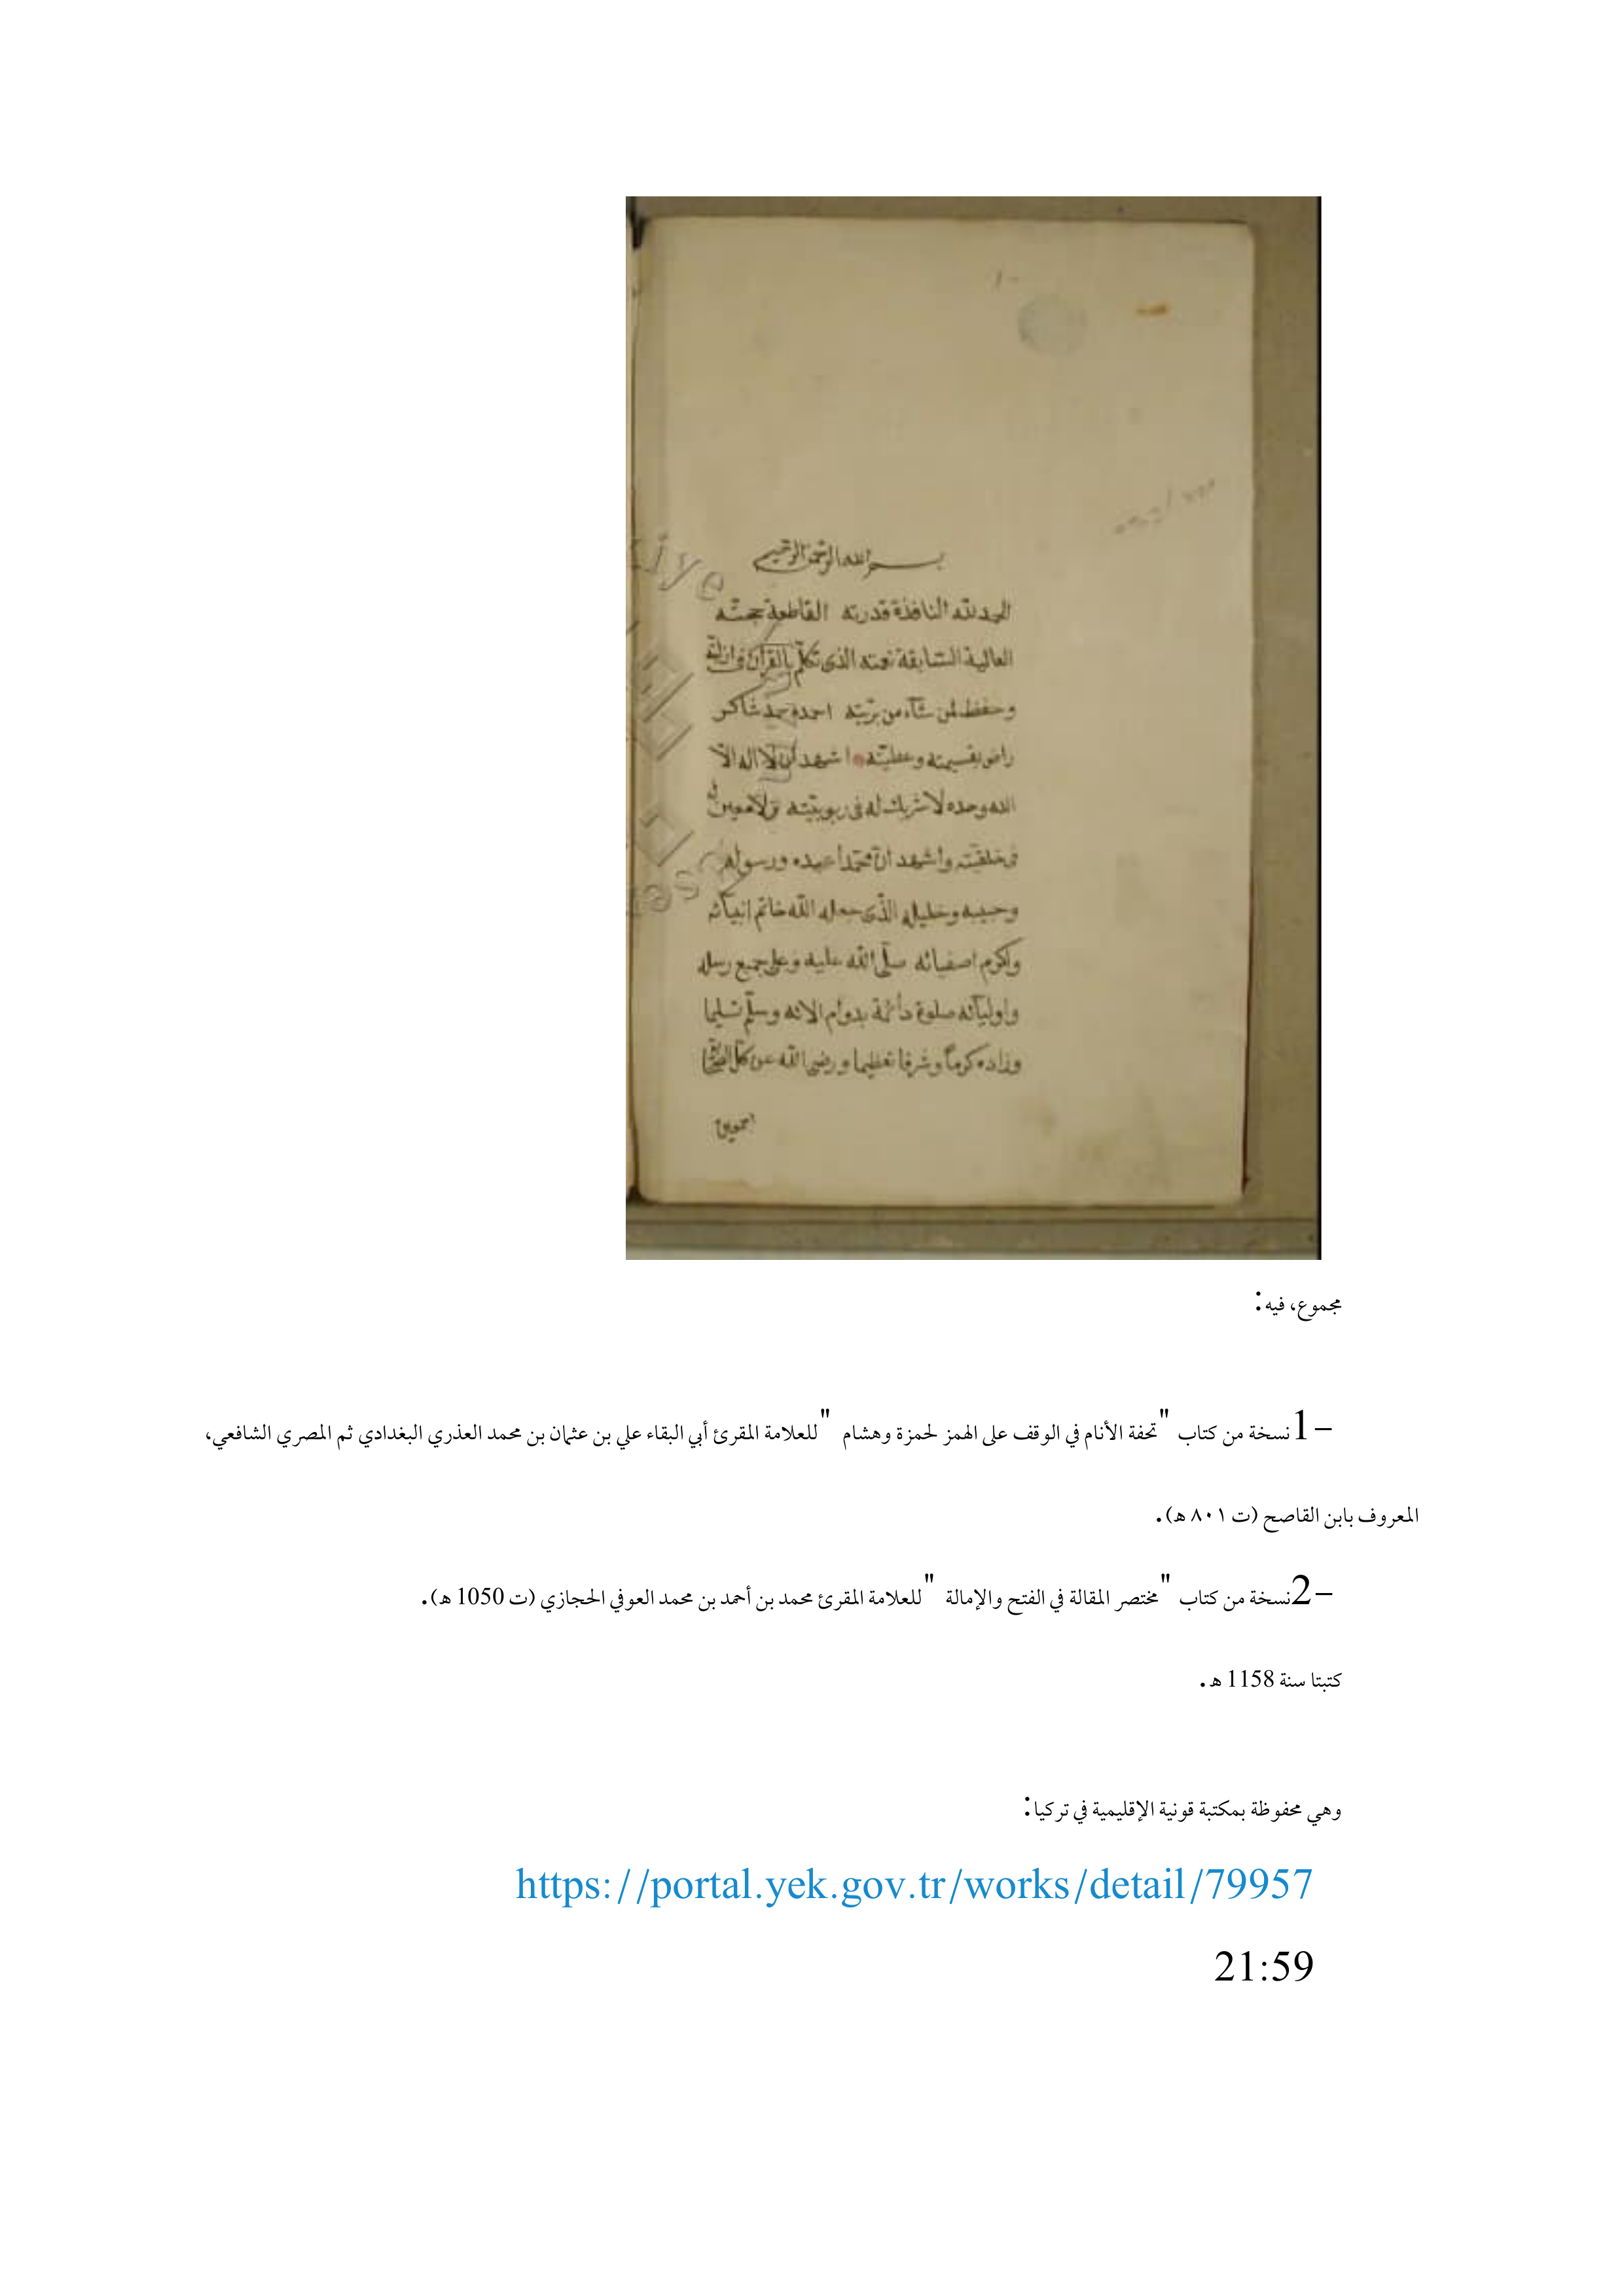 بسم الله الرحمن الرحيم
الحمد لله النافذة قدرته القاطعة حجته
العالية السابقة نعمته الذى تكلم بالقرآن فى ازليته
وحفظ لمن شآء من بريته احمده حمد شاكر
راض بقسيمته وعطيته اشهد ان لا اله الا
الله وحده لا شريك له فى ربوبيته ولا معين له
فى خلقيته واشهد ان محمدا عبده ورسوله
وحبيبه وخليله الذى جعله الله خاتم انبيآئه
واكرم اصفيائه صلى الله عليه وعلى جميع رسله
واوليآئه صلوة دآئمة بدوام الائه وسلم تسليما
وزاده كرماً وشرفا تعظيما ورضى الله عن كل
اجمعين
مجموع، فيه:
-1نسخة من كتاب "تحفة الأنام في الوقف على الهمز لحمزة وهشام "للعلامة المقرئ أبي البقاء علي بن عثمان بن محمد العذري البغدادي ثم المصري الشافعي،
المعروف بابن القاصح (ت ٨٠١ هـ).
-2نسخة من كتاب "مختصر المقالة في الفتح والإمالة "للعلامة المقرئ محمد بن أحمد بن محمد العوفي الحجازي (ت 1050 هـ).
كتبتا سنة 1158 هـ.
وهي محفوظة بمكتبة قونية الإقليمية في تركيا:
https://portal.yek.gov.tr/works/detail/79957
21:59